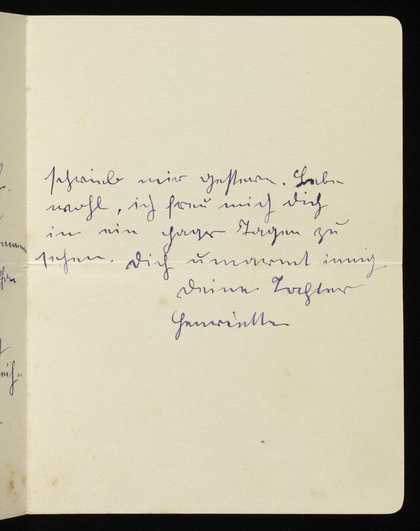 schrieb mir gestern. Lebe
wohl, ich freu mich Dich
in ein paar Tagen zu
sehen. Dich umarmt innig
Deine Tochter
Henriette